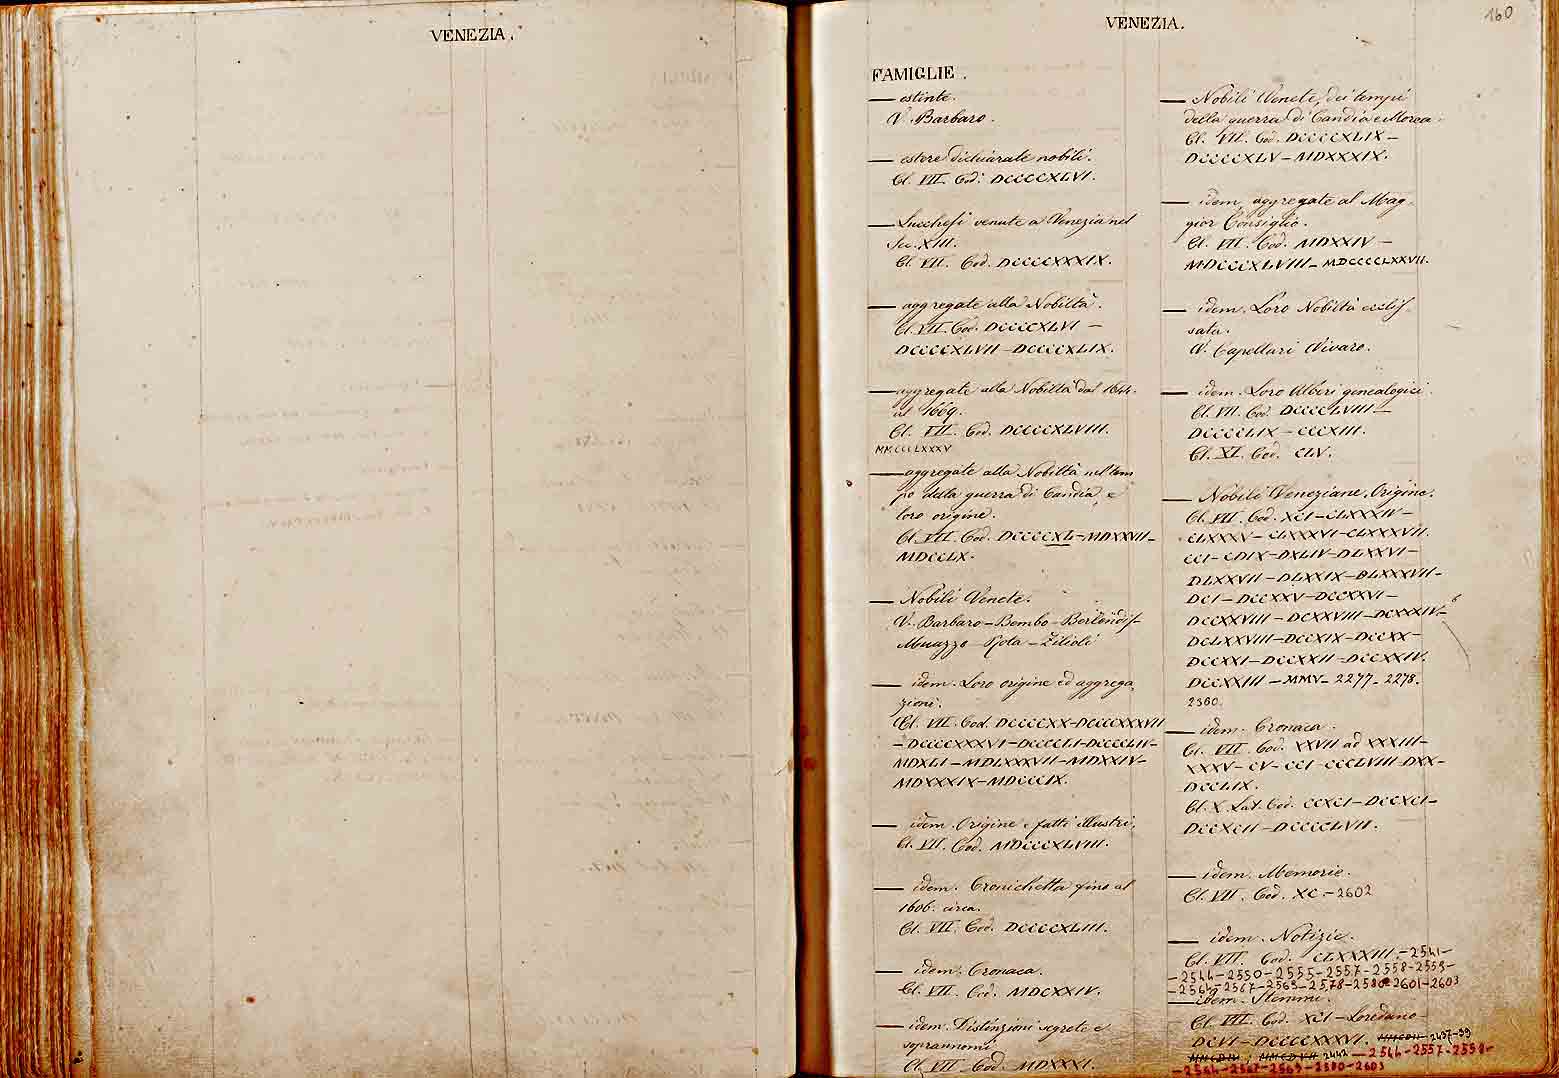 VENEZIA.
VENEZIA.
160
FAMIGLIE.
— estinte.
V. Barbaro.
— estere dichiarate nobili.
Cl. VII. Cod. DCCCCXLVI.
— Lucchesi venute a Venezia nel
Sec. XIII.
Cl. VII. Cod. DCCCCXXXIX.
— aggregate alla Nobiltà.
Cl. VII. Cod. DCCCCXLVI —
DCCCCXLVII — DCCCCXLIX.
— aggregate alla Nobiltà dal 1644.
al 1669.
Cl. VII. Cod. DCCCCXLVIII.
MMCCCLXXXV
— aggregate alla Nobiltà nel tem
po della guerra di Candia, e
loro origine.
Cl. VII. Cod. DCCCCXL — MDXXVII —
MDCCLX.
— Nobili Venete.
V. Barbaro — Bembo — Berlendis
Muazzo — Rota — Zilioli
— idem. Loro origine ed aggrega
zioni.
Cl. VII. Cod. DCCCCXX — DCCCCXXXVII
— DCCCCXXXVI — DCCCCLI — DCCCCLIV —
MDXLI — MDLXXXVII — MDXXIV —
MDXXXIX — MDCCCIX.
— idem. Origine e fatti illustri.
Cl. VII. Cod. MDCCCXLVIII.
— idem. Cronichetta fino al
1606. circa.
Cl. VII. Cod. DCCCCXLIII.
— idem. Cronaca.
Cl. VII. Cod. MDCXXIV.
— idem. Distinzioni segrete e
soprannomi
Cl. VII. Cod. MDXXXI.
— Nobili Venete, dei tempi
della guerra di Candia e Morea.
Cl. VII. Cod. DCCCCXLIX —
DCCCCXLV — MDXXXIX.
— idem, aggregate al Mag-
gior Consiglio.
Cl. VII. Cod. MDXXIV —
MDCCCXLVIII — MDCCCCLXXVII.
— idem. Loro Nobiltà ecclis-
sata.
V. Capellari Vivaro.
— idem. Loro Alberi genealogici
Cl. VII. Cod. DCCCCLVIII —
DCCCCLIX — CCCXIII.
Cl. XI. Cod. CLV.
— Nobili Veneziane. Origine.
Cl. VII. Cod. XCI — CLXXXIV —
CLXXXV — CLXXXVI — CLXXXVII.
CCI — CDIX — DXLIV — DLXXVI —
DLXXVII — DLXXIX — DLXXXVII —
DCI — DCCXXV — DCCXXVI —
DCCXXVIII — DCXXVIII — DCXXXIV —
DCLXXVIII — DCCXIX — DCCXX —
DCCXXI — DCCXXII — DCCXXIV.
DCCXXIII — MMV — 2277 — 2278.
2360.
— idem. Cronaca.
Cl. VII. Cod. XXVII ad XXXIII —
XXXV — CV — CCI — CCCLVIII — DXX —
DCCLIX.
Cl. X. Lat. Cod. CCXCI — DCCXCI —
DCCXCII — DCCCCLVII.
— idem. Memorie.
Cl. VII. Cod. XC. — 2602
— idem. Notizie.
Cl. VII. Cod. CLXXXIII. — 2541 —
— 2544 — 2550 — 2555 — 2557 — 2558 — 2559 —
— 2564 — 2567 — 2569 — 2578 — 2580 — 2601 — 2603
— idem. Stemmi.
Cl. VII. Cod. XCI — Loredano —
DCVI — DCCCCXXXVI. 2437-39
2442 — 2544 — 2557 — 2558 —
— 2564 — 2567 — 2569 — 2580 — 2603